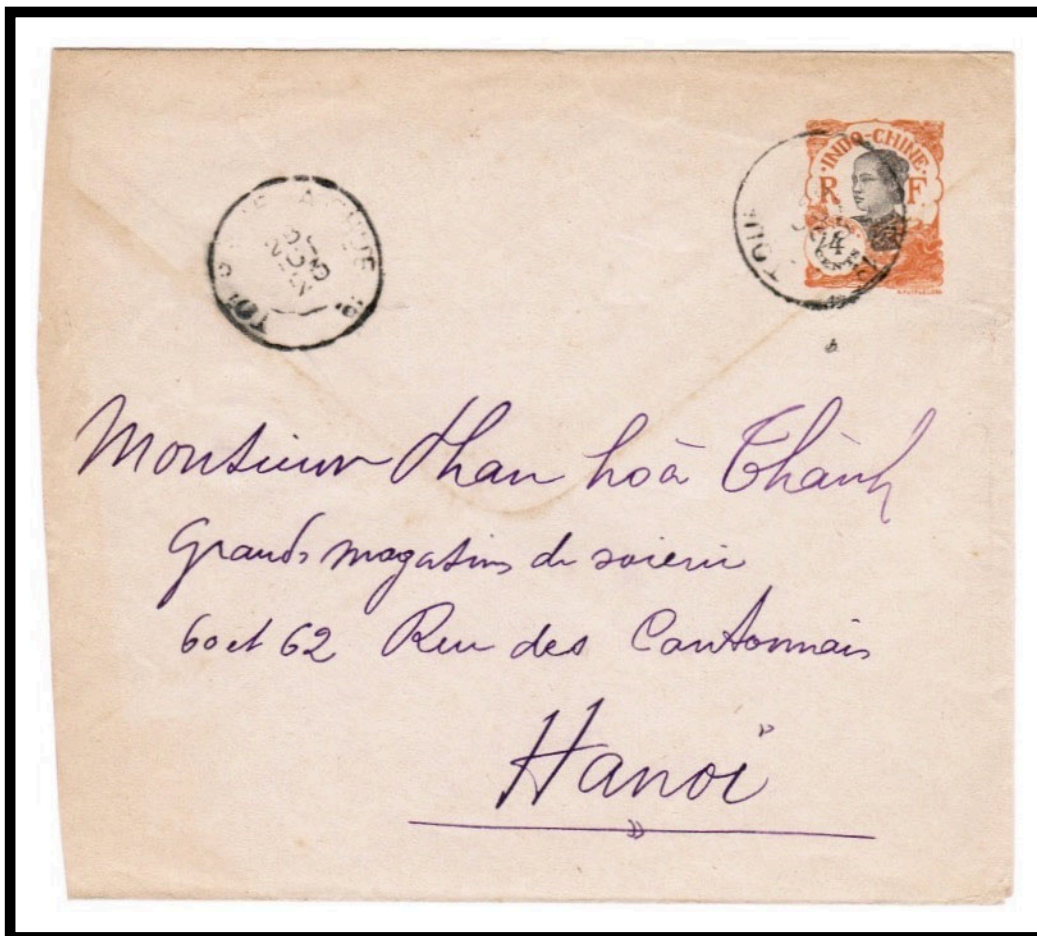 INDO-CHINE
R F
4
CENTS
Monsieur hoà Thành
Grands magasins de soierie
60 et 62 Rue des Cantonnais
Hanoï